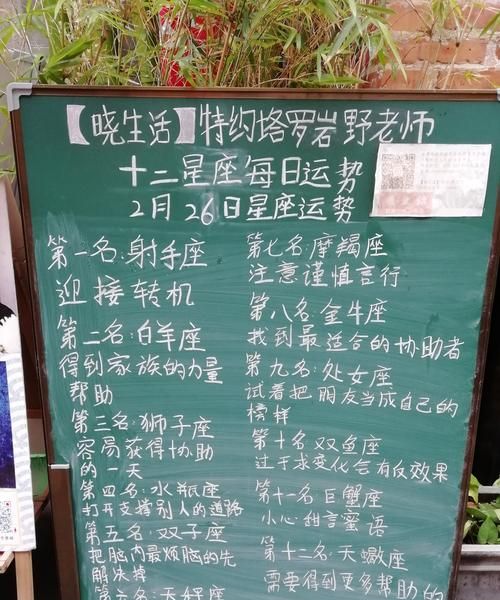 【晓生活】特约塔罗岩野老师
十二星座每日运势
2月26日星座运势
第一名:射手座
迎接转机
第二名:白羊座
得到家族的力量
帮助
第三名:狮子座
容易获得协助
的一天
第四名:水瓶座
打开支撑别人的道路
第五名:双子座
把脑内最烦脑的先
解决掉
第六名:天秤座
第七名:摩羯座
注意谨慎言行
第八名:金牛座
找到最适合的协助者
第九名:处女座
试着把朋友当成自己的
榜样
第十名双鱼座
过于求变化会有反效果
第十一名巨蟹座
小心甜言蜜语
第十二名:天蠍座
需要得到更多帮助的